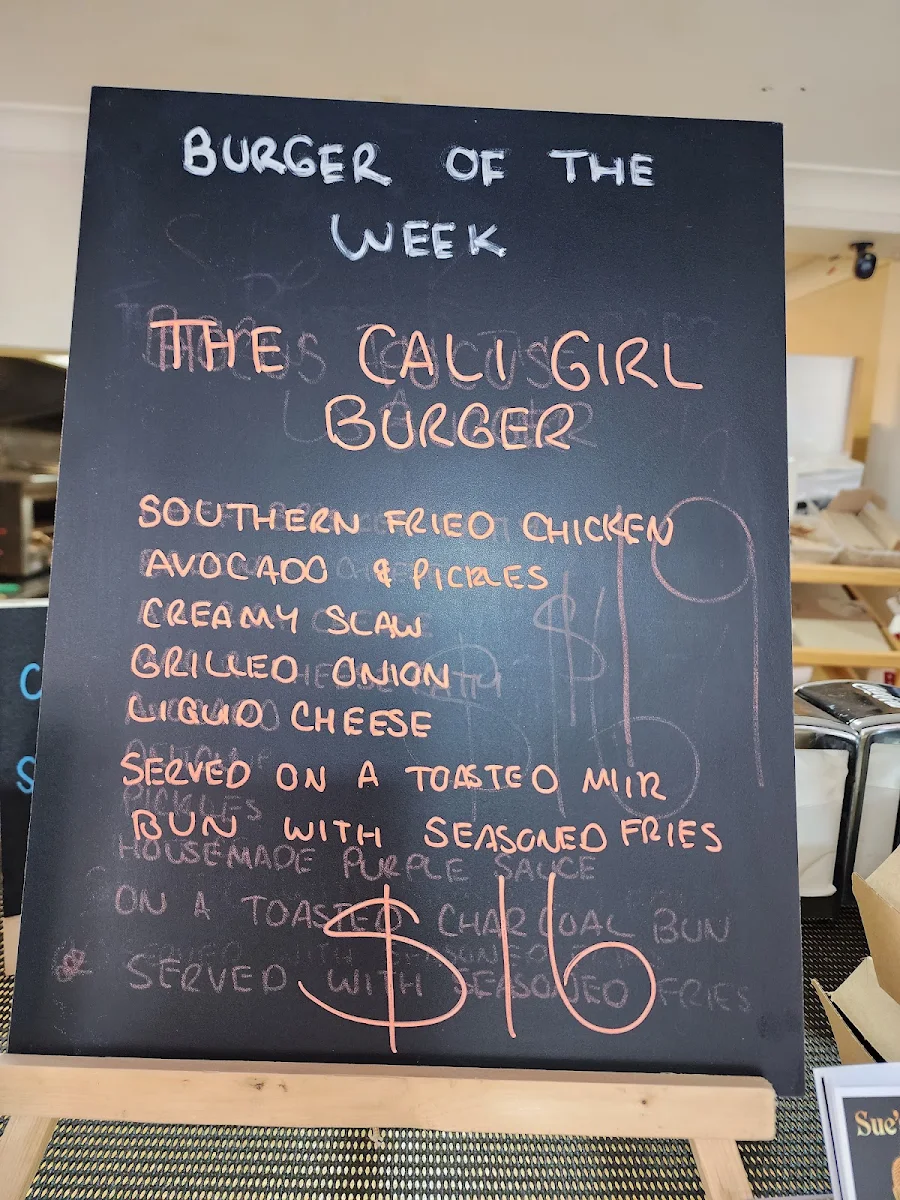 BURGER OF THE
WEEK
THE CALI GIRL
BURGER
SOUTHERN FRIED CHICKEN
AVOCADO & PICKLES
CREAMY SLAW
GRILLED ONION
LIQUID CHEESE
SERVED ON A TOASTED MILK
BUN WITH SEASONED FRIES
$16
19
$16
PICKLES
HOUSEMADE PURPLE SAUCE
ON A TOASTED CHARCOAL BUN
SERVED WITH SEASONED FRIES
Sue's